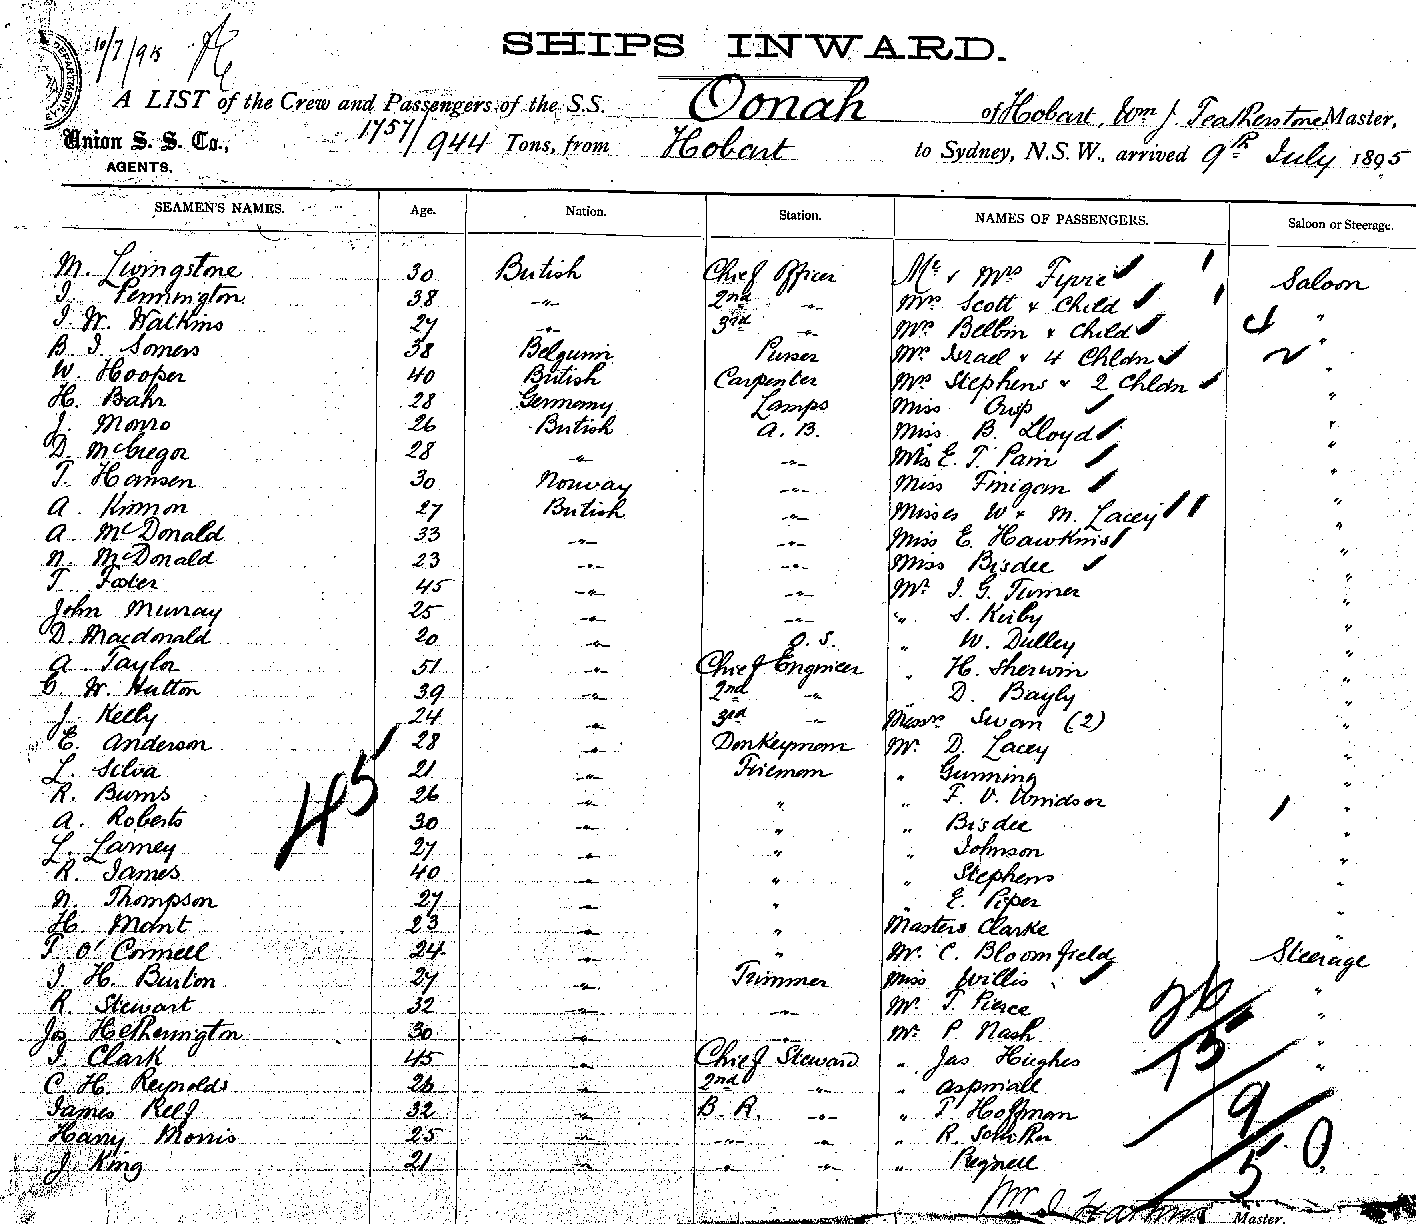 10/7/95
SHIPS INWARD.
A LIST of the Crew and Passengers of the S.S. Oonah of Hobart, Wm J. Featherstone Master,
Union S. S. Co., 1757/944 Tons, from Hobart to Sydney, N.S.W., arrived 9th July 1895
AGENTS.
SEAMEN'S NAMES. Age. Nation. Station. NAMES OF PASSENGERS. Saloon or Steerage.
M. Livingstone 30 British Chief Officer Mr & Mrs Fyvie Saloon
J. Pennington 38 " 2nd " Mrs Scott & Child "
J. W. Watkins 27 " 3rd " Mrs Belbin & Child "
B. J. Somers 38 Belguim Purser Mrs Israel & 4 Chldn "
W. Hooper 40 British Carpenter Mrs Stephens & 2 Chldn "
H. Bahr 28 Germany Lamps Miss Crisp "
J. Monro 26 British A. B. Miss B. Lloyd "
D. McGregor 28 " " E. T. Pain "
T. Hansen 30 Norway " Miss Finigan "
A. Kinnon 27 British " Misses W & M. Lacey "
A. McDonald 33 " " Miss E. Hawkins "
N. McDonald 23 " " Miss Bisdee "
T. Foster 45 " " Mr. J. G. Turner "
John Murray 25 " " " S. Kirby "
D. Macdonald 20 " O. S. " W. Dulley "
A. Taylor 51 " Chief Engineer " H. Sherwin "
C. W. Hutton 39 " 2nd " " D. Bayly "
J. Kelly 24 " 3rd " Messrs Swan (2) "
E. Anderson 28 " Donkeyman Mr. D. Lacey "
L. Silva 21 " Fireman " Gunning "
R. Burns 26 " " " F. V. "
A. Roberts 30 " " " Bisdee "
L. Larney 27 " " " Johnson "
R. James 40 " " " Stephens "
N. Thompson 27 " " " E. Piper "
H. Mont 23 " " Masters Clarke "
T. O'Connell 24 " " Mr. C. Bloomfield Steerage
J. H. Burton 27 " Trimmer Miss Willis "
R. Stewart 32 " " Mr. T. Pierce "
Jos Hetherington 30 " " Mr. P. Nash "
J. Clark 45 " Chief Steward " Jas Hughes "
C. H. Reynolds 26 " 2nd " " Aspinall
James Relf 32 " B. R. " " T. Hoffman
Harry Morris 25 " " " " R.
J. King 21 " " " " Regnell
45
26
15
9
50
Master.